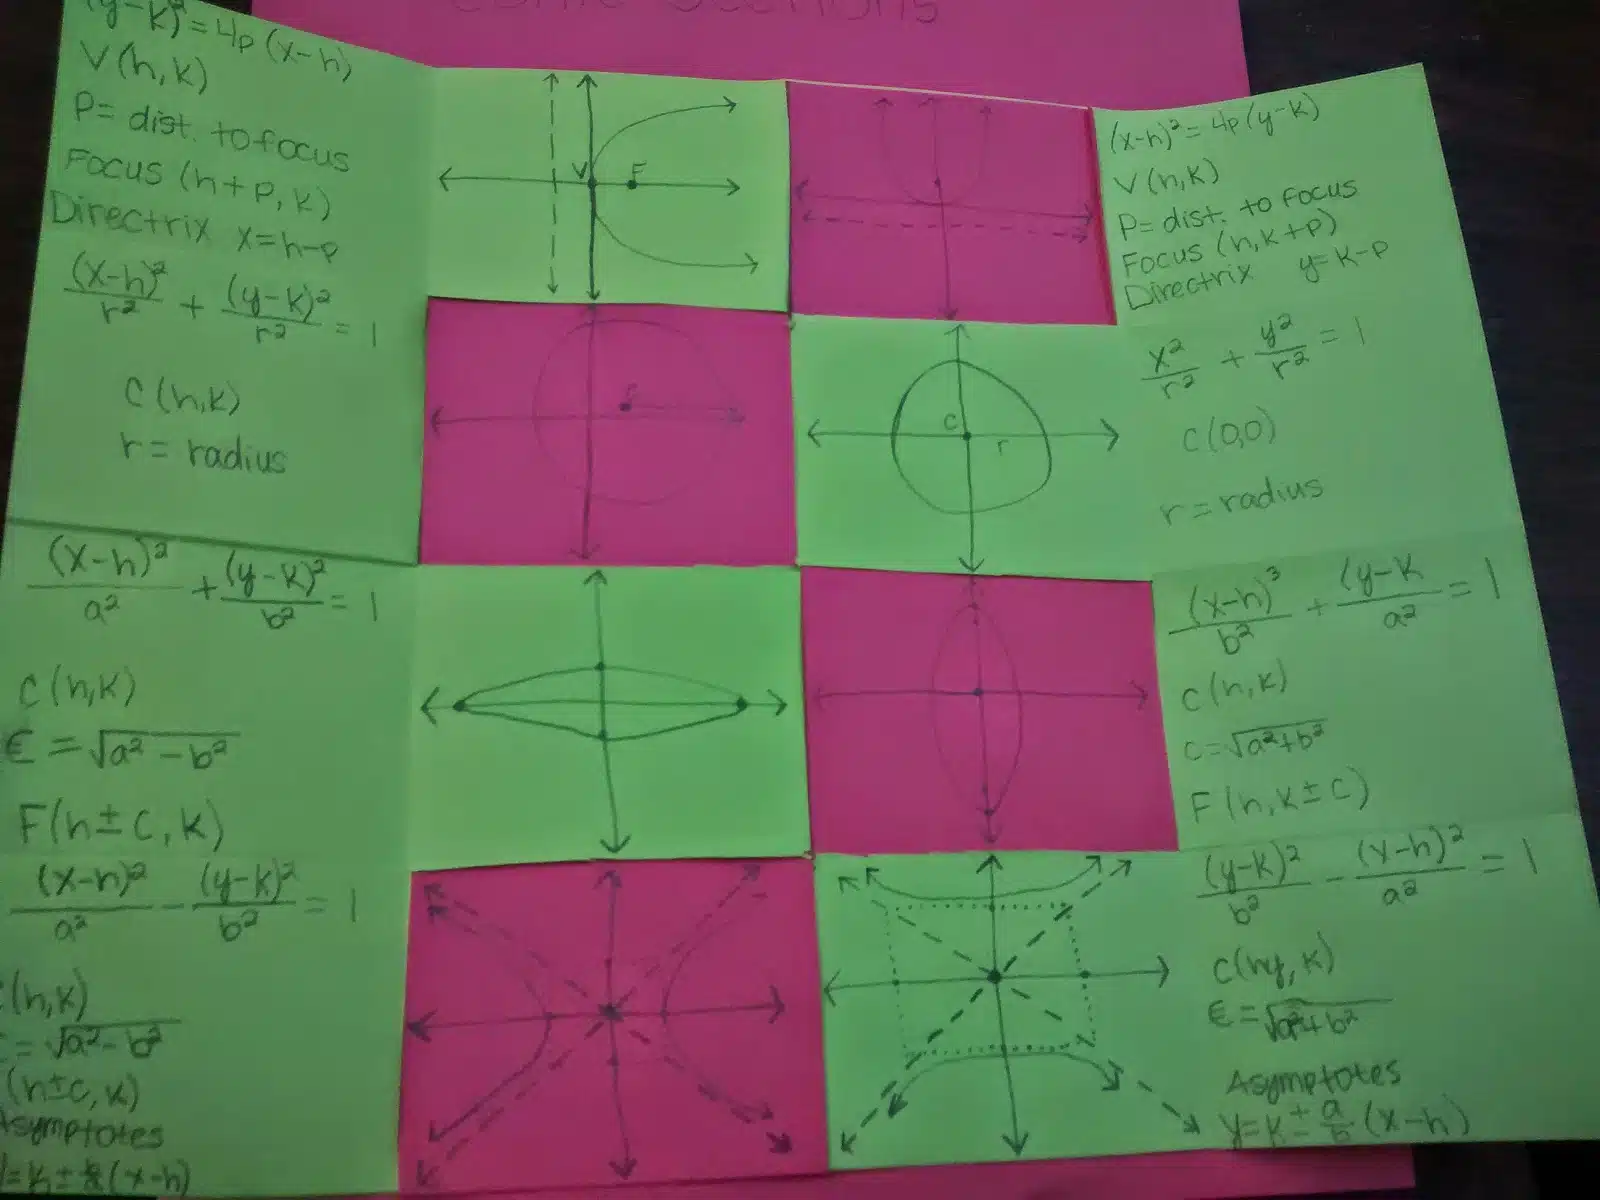 Conic Sections
(y-k)²=4p(x-h)
V(h,k)
P= dist. to focus
Focus (h+p,k)
Directrix x=h-p
V F
(x-h)²=4p(y-k)
V(h,k)
P= dist. to focus
Focus (h,k+p)
Directrix y=k-p
(x-h)²/r² + (y-k)²/r² = 1
C(h,k)
r= radius
C r
x²/r² + y²/r² = 1
C(0,0)
r= radius
(x-h)²/a² + (y-k)²/b² = 1
C(h,k)
c = √a²-b²
F(h±c,k)
(x-h)³/b² + (y-k/a² = 1
C(h,k)
c=√a²+b²
F(h,k±c)
(x-h)²/a² - (y-k)²/b² = 1
(h,k)
= √a²-b²
(h±c,k)
Asymptotes
(x-h)
(y-k)²/b² - (x-h)²/a² = 1
k)
= √a²+b²
Asymptotes
y=k±a/b(x-h)